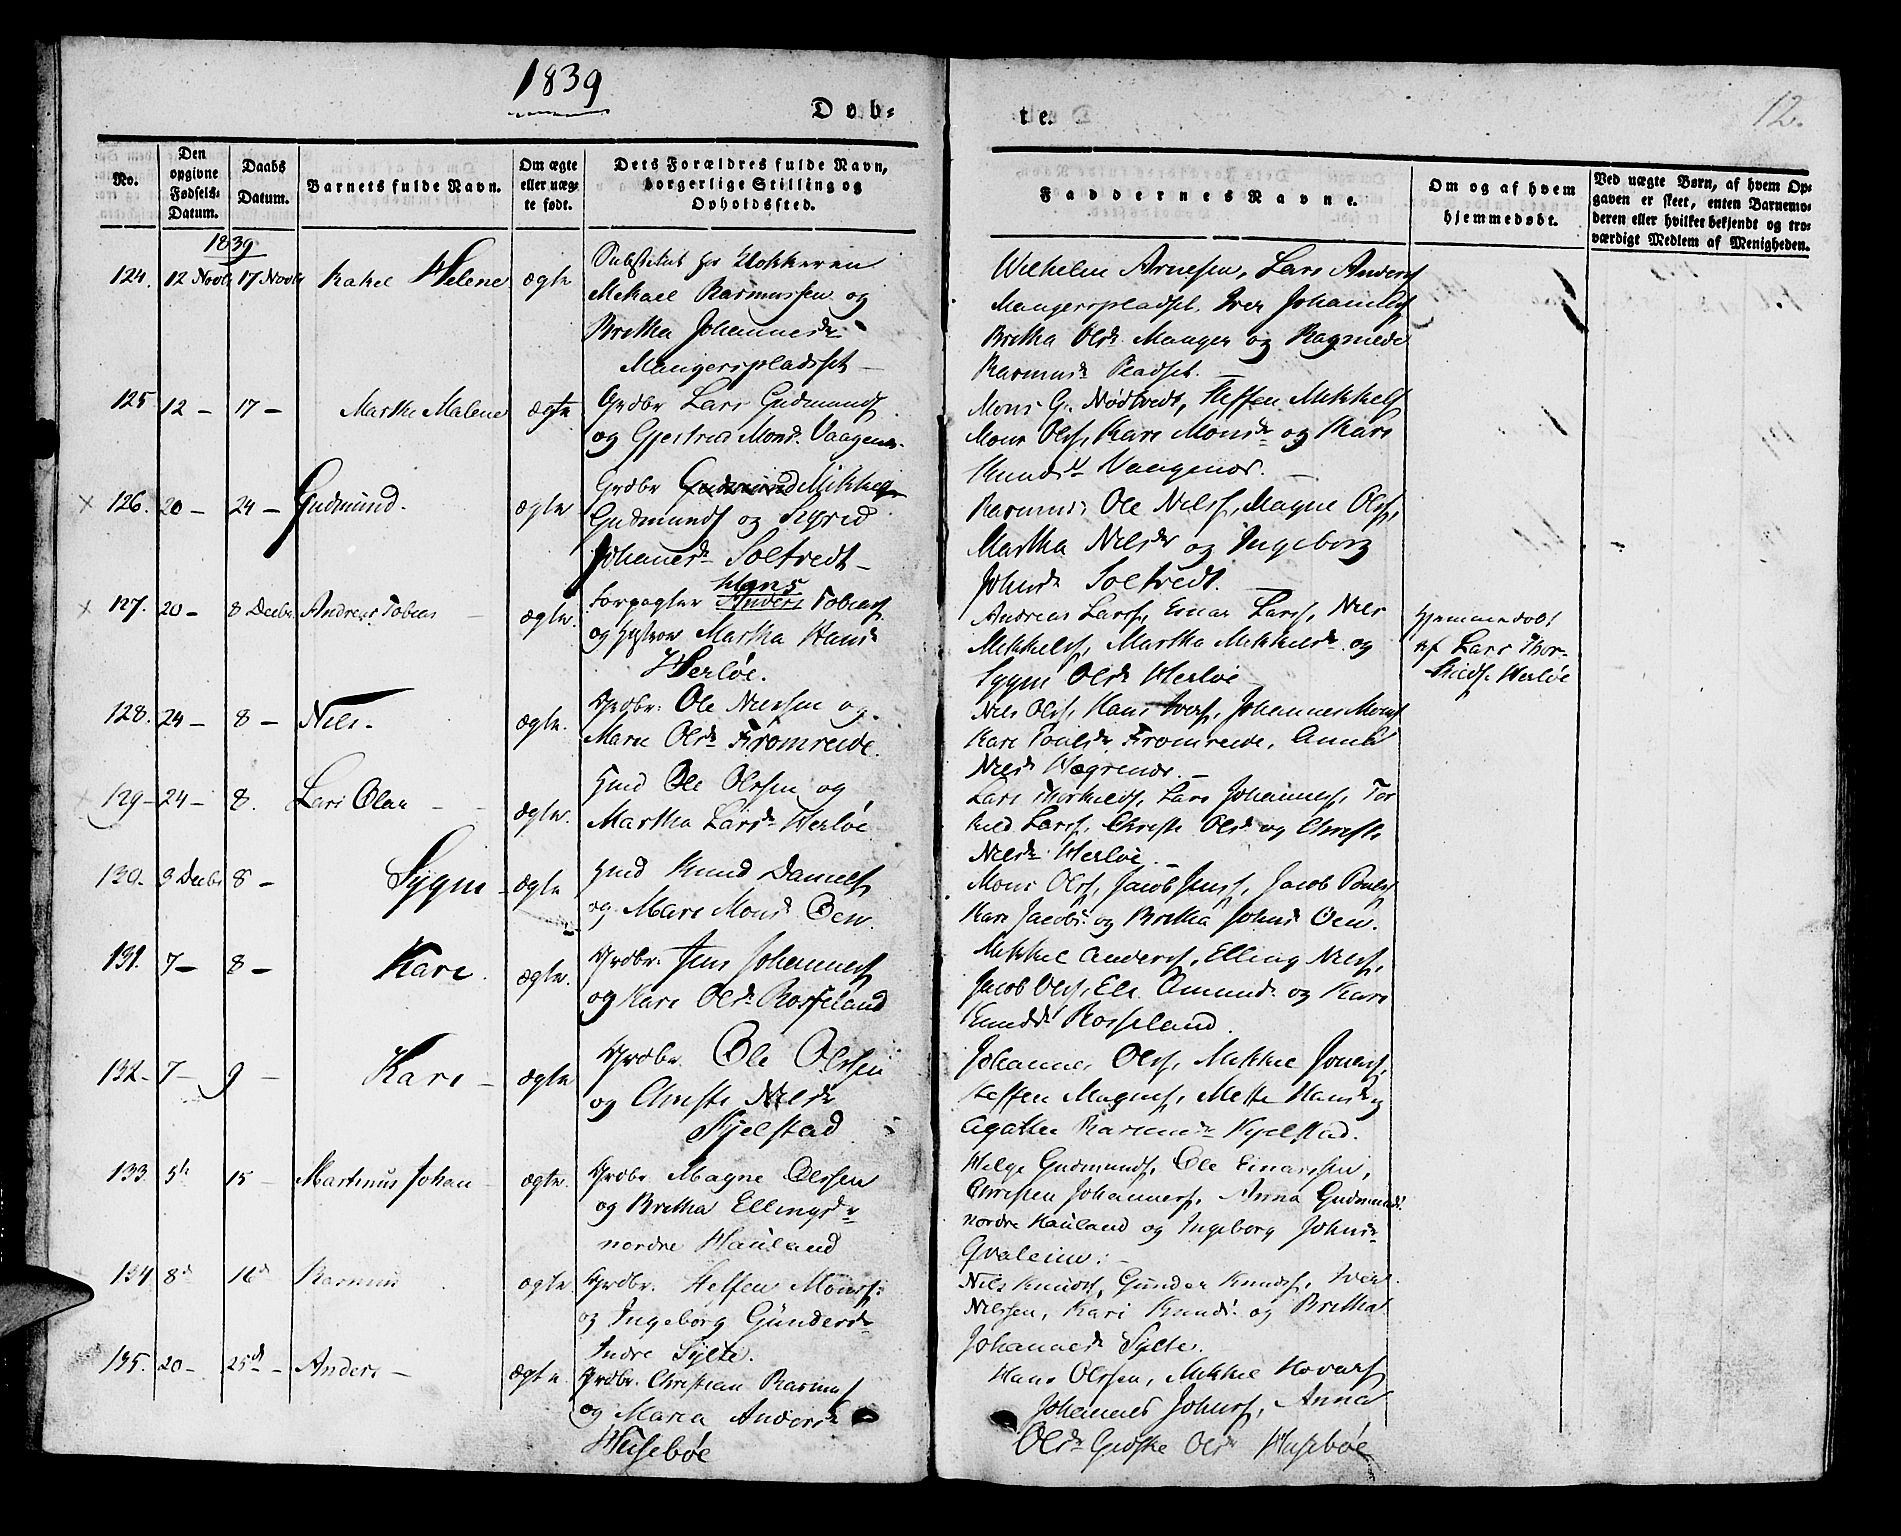 1839
Døb-
te.
12.
No.
Den opgivne Fødsels-Datum.
Daabs Datum.
Barnets fulde Navn.
Om ægte eller uæg-te født.
Dets Forældres fulde Navn, borgerlige Stilling og Opholdssted.
Faddernes Navne.
Om og af hvem hjemmedøbt.
Ved uægte Børn, af hvem Op-gaven er skeet, enten Barnemo-deren eller hvilket bekjendt og tro-værdigt Medlem af Menigheden.
1839
124. 12 Novbr 17 Novbr Rakel Helene ægte
Substitut for Klokkeren
Mikael Rasmussen og
Bretha Johannesdr
Mangerspladset
Wilhelm Arnesen, Lars Anders
Mangerspladset, Iver Johannes
Bretha Olsdr Manger og Ragnilde
Rasmusdr Pladset.
125 12 - 17 - Marthe Malene ægte.
Grdbr Lars Gudmunds
og Gjertrud Monsdr Vaagenes.
Mons G. Nødtvedt, Steffen Mikkels
Mons Ols, Kari Monsdr og Kari
Knudsdr Vaagenes.
126. 20 - 24 - Gudmund. ægte
Grdbr Gudmund Mikkel
Gudmunds og Sigrid
Johanesdr Soltvedt
Rasmus Ole Nils, Magne Ols,
Martha Nilsdr og Ingeborg
Johnsdr Soltvedt.
127. 20 - 8 Decbr Andreas Tobias ægte.
Forpagter Anders Hans Tobias
og Hustrue Martha Hansdr
Herløe.
Andreas Lars, Einar Lars, Nils
Mikkels, Martha Mikkelsdr og
Sygni Olsdr Herløe
hjemmedøbt
af Lars Thor-
kilds. Herløe
128. 24 - 8 - Nils. ægte.
Grdbr. Ole Nielsen og
Mari Olsdr Fromreide.
Nils Ols, Hans Ivers, Johannes Mons
Kari Poulsdr Fromreide, Anna
Nilsdr Hagenæs.
129 - 24 - 8. Lars Olai - ægte.
Hmd Ole Olssen og
Martha Larsdr Herløe
Lars Thorkilds, Lars Johannes, Tor
kild Lars, Christi Olsdr og Christi
Nilsdr Herløe.
130. 3 Decbr 8 - Sygni - ægte
Hmd Knud Daniels
og Mari Monsdr Oen.
Mons Ols, Jacob Jens, Jacob Pouls
Kari Jacobs. og Bretha Johnsdr Oen.
131. 7 - 8 - Kari. ægte.
Grdbr. Jens Johannes
og Kari Olsdr Rosseland
Mikkel Anders, Elling Nils,
Jacob Ols, Eli Amundsdr og Kari
Knudsdr Rosseland.
132 - 7 - 9 - Kari - ægte
Grdbr. Ole Olssen
og Christi Nilsdr
Kjelstad
Johannes Ols, Mikkel Jones,
Steffen Magnes, Mette Hansdr og
Agathe Rasmusdr Kjelstad.
133. 5te 15 - Martinus Johan ægte.
Grdbr. Magne Olssen
og Bretha Ellingsdr
nordre Hauland
Helge Gudmunds, Ole Einarssen,
Christen Johannes, Anna Gudmunds
nordre Hauland og Ingeborg Johnsdr
Qvaleim.
134 8d 16d Rasmus ægte
Grdbr. Steffen Mons:
og Ingeborg Gundersdr
Indre Sylte.
Nils Knuds, Gunder Knuds, Iver
Nilssen, Kari Knuds. og Bretha
Johannesdr Sylte.
135. 20 - 25d - Anders - ægte.
Grdbr. Christian Rasmus
og Maria Andersdr
Husebøe
Hans Olssen, Mikkel Hovars
Johannes Johns, Anna
Olsdr Grøske Olsdr Husebøe